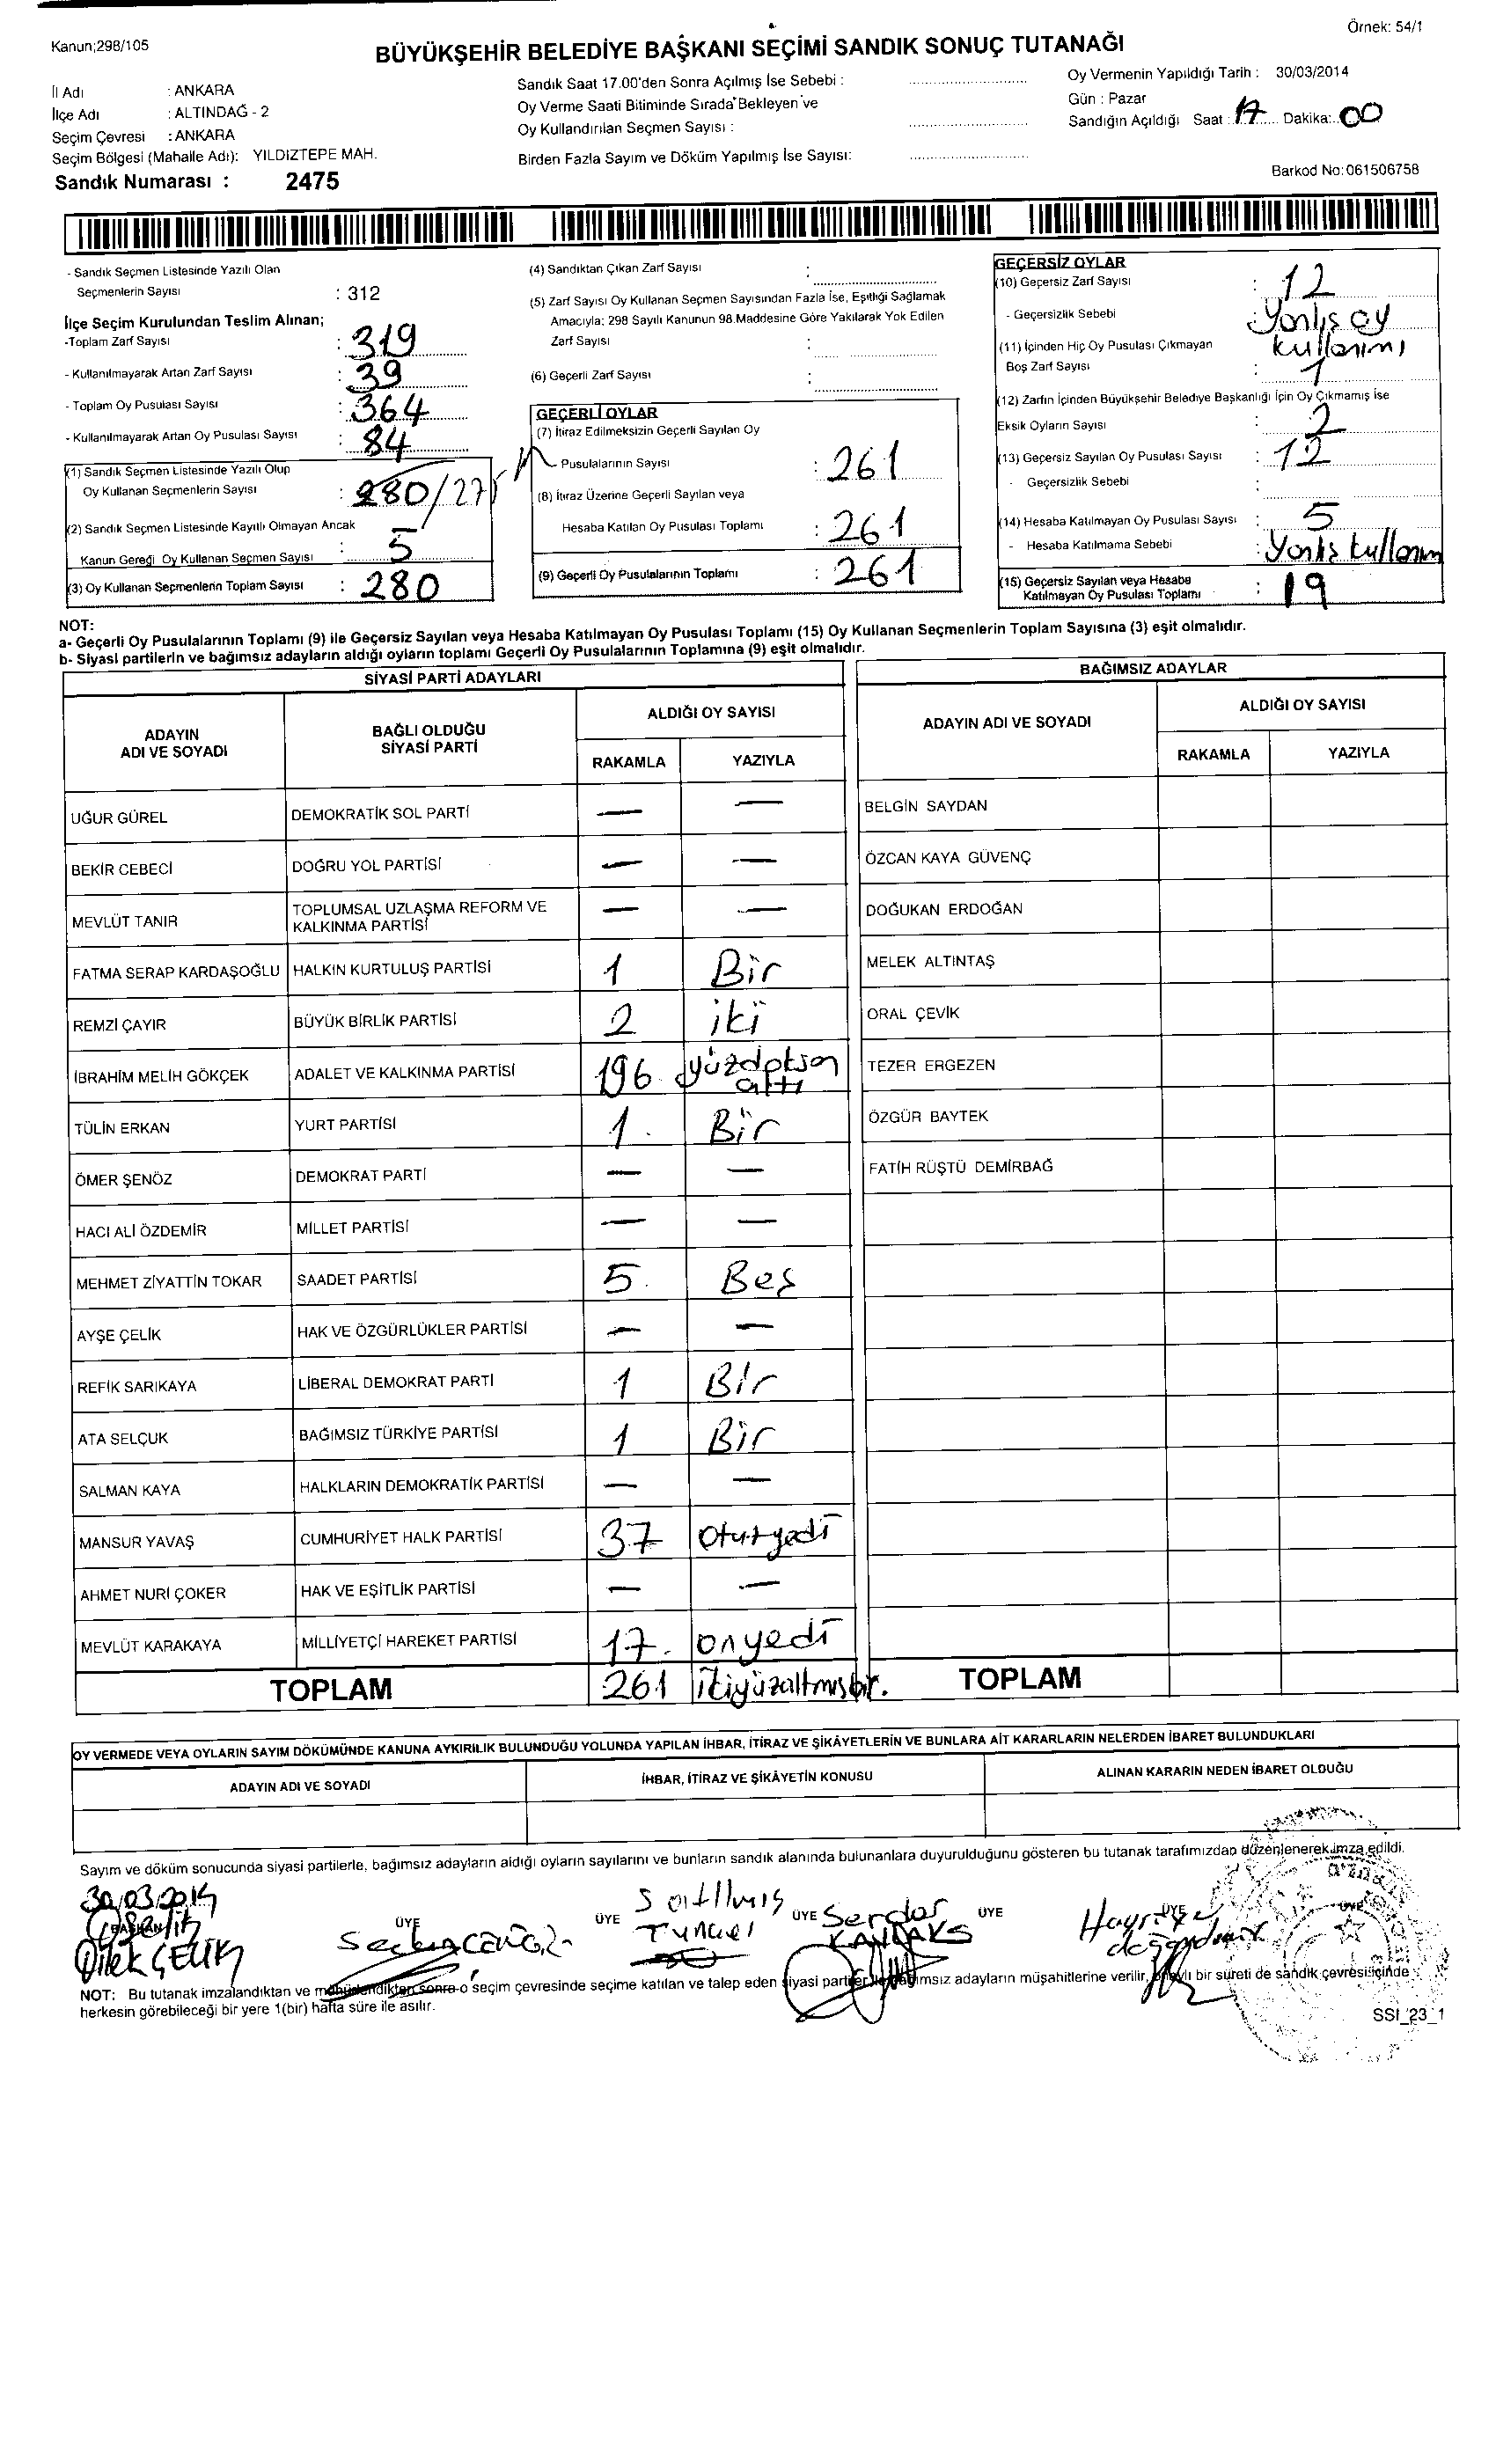 Örnek: 54/1
Kanun;298/105
BÜYÜKŞEHİR BELEDİYE BAŞKANI SEÇİMİ SANDIK SONUÇ TUTANAĞI
İl Adı : ANKARA
İlçe Adı : ALTINDAĞ - 2
Seçim Çevresi : ANKARA
Seçim Bölgesi (Mahalle Adı): YILDIZTEPE MAH.
Sandık Numarası : 2475
Sandık Saat 17.00'den Sonra Açılmış İse Sebebi :
Oy Verme Saati Bitiminde Sırada Bekleyen ve
Oy Kullandırılan Seçmen Sayısı :
Birden Fazla Sayım ve Döküm Yapılmış İse Sayısı:
Oy Vermenin Yapıldığı Tarih : 30/03/2014
Gün : Pazar
Sandığın Açıldığı Saat : 17 Dakika: 00
Barkod No:061506758
- Sandık Seçmen Listesinde Yazılı Olan
Seçmenlerin Sayısı : 312
İlçe Seçim Kurulundan Teslim Alınan;
-Toplam Zarf Sayısı : 319
- Kullanılmayarak Artan Zarf Sayısı : 39
- Toplam Oy Pusulası Sayısı : 364
- Kullanılmayarak Artan Oy Pusulası Sayısı : 84
(1) Sandık Seçmen Listesinde Yazılı Olup
Oy Kullanan Seçmenlerin Sayısı : 280/275
(2) Sandık Seçmen Listesinde Kayıtlı Olmayan Ancak
Kanun Gereği Oy Kullanan Seçmen Sayısı : 5
(3) Oy Kullanan Seçmenlerin Toplam Sayısı : 280
(4) Sandıktan Çıkan Zarf Sayısı :
(5) Zarf Sayısı Oy Kullanan Seçmen Sayısından Fazla İse, Eşitliği Sağlamak
Amacıyla; 298 Sayılı Kanunun 98.Maddesine Göre Yakılarak Yok Edilen
Zarf Sayısı :
(6) Geçerli Zarf Sayısı :
GEÇERLİ OYLAR
(7) İtiraz Edilmeksizin Geçerli Sayılan Oy
Pusulalarının Sayısı : 261
(8) İtiraz Üzerine Geçerli Sayılan veya
Hesaba Katılan Oy Pusulası Toplamı : 261
(9) Geçerli Oy Pusulalarının Toplamı : 261
GEÇERSİZ OYLAR
(10) Geçersiz Zarf Sayısı : 12
- Geçersizlik Sebebi : Yanlış oy
kullanımı
(11) İçinden Hiç Oy Pusulası Çıkmayan
Boş Zarf Sayısı : 1
(12) Zarfın İçinden Büyükşehir Belediye Başkanlığı İçin Oy Çıkmamış İse
Eksik Oyların Sayısı : 2
(13) Geçersiz Sayılan Oy Pusulası Sayısı : 12
- Geçersizlik Sebebi :
(14) Hesaba Katılmayan Oy Pusulası Sayısı : 5
- Hesaba Katılmama Sebebi : Yanlış kullanım
(15) Geçersiz Sayılan veya Hesaba
Katılmayan Oy Pusulası Toplamı : 19
NOT:
a- Geçerli Oy Pusulalarının Toplamı (9) ile Geçersiz Sayılan veya Hesaba Katılmayan Oy Pusulası Toplamı (15) Oy Kullanan Seçmenlerin Toplam Sayısına (3) eşit olmalıdır.
b- Siyasi partilerin ve bağımsız adayların aldığı oyların toplamı Geçerli Oy Pusulalarının Toplamına (9) eşit olmalıdır.
SİYASİ PARTİ ADAYLARI
ADAYIN ADI VE SOYADI BAĞLI OLDUĞU SİYASİ PARTİ ALDIĞI OY SAYISI
RAKAMLA YAZIYLA
UĞUR GÜREL DEMOKRATİK SOL PARTİ — —
BEKİR CEBECİ DOĞRU YOL PARTİSİ — —
MEVLÜT TANIR TOPLUMSAL UZLAŞMA REFORM VE KALKINMA PARTİSİ — —
FATMA SERAP KARDAŞOĞLU HALKIN KURTULUŞ PARTİSİ 1 Bir
REMZİ ÇAYIR BÜYÜK BİRLİK PARTİSİ 2 iki
İBRAHİM MELİH GÖKÇEK ADALET VE KALKINMA PARTİSİ 196 yüzdoksan altı
TÜLİN ERKAN YURT PARTİSİ 1. Bir
ÖMER ŞENÖZ DEMOKRAT PARTİ — —
HACI ALİ ÖZDEMİR MİLLET PARTİSİ — —
MEHMET ZİYATTİN TOKAR SAADET PARTİSİ 5. Beş
AYŞE ÇELİK HAK VE ÖZGÜRLÜKLER PARTİSİ — —
REFİK SARIKAYA LİBERAL DEMOKRAT PARTİ 1 Bir
ATA SELÇUK BAĞIMSIZ TÜRKİYE PARTİSİ 1 Bir
SALMAN KAYA HALKLARIN DEMOKRATİK PARTİSİ — —
MANSUR YAVAŞ CUMHURİYET HALK PARTİSİ 37 otuzyedi
AHMET NURİ ÇOKER HAK VE EŞİTLİK PARTİSİ — —
MEVLÜT KARAKAYA MİLLİYETÇİ HAREKET PARTİSİ 17. onyedi
TOPLAM 261 ikiyüzaltmışbir.
BAĞIMSIZ ADAYLAR
ADAYIN ADI VE SOYADI ALDIĞI OY SAYISI
RAKAMLA YAZIYLA
BELGİN SAYDAN
ÖZCAN KAYA GÜVENÇ
DOĞUKAN ERDOĞAN
MELEK ALTINTAŞ
ORAL ÇEVİK
TEZER ERGEZEN
ÖZGÜR BAYTEK
FATİH RÜŞTÜ DEMİRBAĞ
TOPLAM
OY VERMEDE VEYA OYLARIN SAYIM DÖKÜMÜNDE KANUNA AYKIRILIK BULUNDUĞU YOLUNDA YAPILAN İHBAR, İTİRAZ VE ŞİKÂYETLERİN VE BUNLARA AİT KARARLARIN NELERDEN İBARET BULUNDUKLARI
ADAYIN ADI VE SOYADI İHBAR, İTİRAZ VE ŞİKÂYETİN KONUSU ALINAN KARARIN NEDEN İBARET OLDUĞU
Sayım ve döküm sonucunda siyasi partilerle, bağımsız adayların aldığı oyların sayılarını ve bunların sandık alanında bulunanlara duyurulduğunu gösteren bu tutanak tarafımızdan düzenlenerek imza edildi.
30.03.2014
BAŞKAN ÜYE ÜYE ÜYE ÜYE ÜYE
Dilek ÇELİK
Satılmış Tuncel
Serdar
Hayriye
NOT: Bu tutanak imzalandıktan ve mühürlendikten sonra o seçim çevresinde seçime katılan ve talep eden siyasi partiler ile bağımsız adayların müşahitlerine verilir, onaylı bir sureti de sandık çevresi içinde
herkesin görebileceği bir yere 1(bir) hafta süre ile asılır.
SSI_23_1